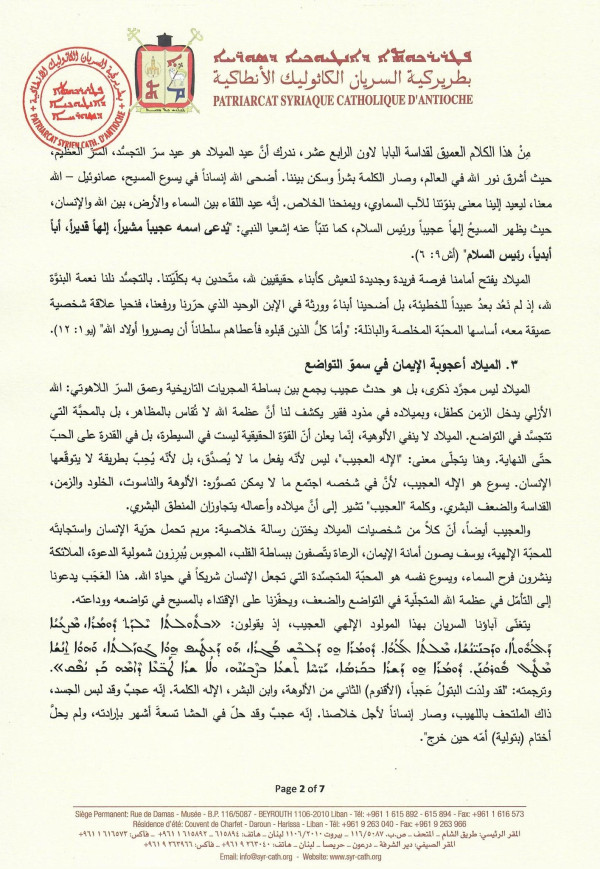 بطريركية السريان الكاثوليك الأنطاكية
PATRIARCAT SYRIAQUE CATHOLIQUE D'ANTIOCHE
PATRIARCAT SYRIEN CATH. D'ANTIOCHE
مِنْ هذا الكلام العميق لقداسة البابا لاون الرابع عشر، ندرك أنَّ عيد الميلاد هو عيد سرّ التجسُّد، السرّ العظيم،
حيث أشرق نور الله في العالم، وصار الكلمة بشراً وسكن بيننا. أضحى الله إنساناً في يسوع المسيح، عمانوئيل – الله
معنا، ليعيد إلينا معنى بنوّتنا للآب السماوي، ويمنحنا الخلاص. إنَّه عيد اللقاء بين السماء والأرض، بين الله والإنسان،
حيث يظهر المسيحُ إلهاً عجيباً ورئيس السلام، كما تنبَّأ عنه إشعيا النبي: "يُدعى اسمه عجيباً مشيراً، إلهاً قديراً، أباً
أبدياً، رئيس السلام" (أش٩: ٦).
الميلاد يفتح أمامنا فرصة فريدة وجديدة لنعيش كأبناء حقيقيين لله، متّحدين به بكلّيّتنا. بالتجسُّد نلنا نعمة البنوَّة
لله، إذ لم نَعُد بعدُ عبيداً للخطيئة، بل أضحينا أبناءً وورثة في الإبن الوحيد الذي حرّرنا ورفعنا، فنحيا علاقة شخصية
عميقة معه، أساسها المحبّة المخلصة والباذلة: "وأمّا كلُّ الذين قبلوه فأعطاهم سلطاناً أن يصيروا أولاد الله" (يو١: ١٢).
٣. الميلاد أعجوبة الإيمان في سموّ التواضع
الميلاد ليس مجرَّد ذكرى، بل هو حدث عجيب يجمع بين بساطة المجريات التاريخية وعمق السرّ اللاهوتي: الله
الأزلي يدخل الزمن كطفل، وبميلاده في مذود فقير يكشف لنا أنَّ عظمة الله لا تُقاس بالمظاهر، بل بالمحبَّة التي
تتجسَّد في التواضع. الميلاد لا ينفي الألوهية، إنَّما يعلن أنّ القوّة الحقيقية ليست في السيطرة، بل في القدرة على الحبّ
حتّى النهاية. وهنا يتجلّى معنى: "الإله العجيب"، ليس لأنّه يفعل ما لا يُصدَّق، بل لأنّه يُحِبّ بطريقة لا يتوقّعها
الإنسان. يسوع هو الإله العجيب، لأنَّ في شخصه اجتمع ما لا يمكن تصوُّره: الألوهة والناسوت، الخلود والزمن،
القداسة والضعف البشري. وكلمة "العجيب" تشير إلى أنَّ ميلاده وأعماله يتجاوزان المنطق البشري.
والعجيب أيضاً، أنّ كلاًّ من شخصيات الميلاد يختزن رسالة خلاصية: مريم تحمل حرّية الإنسان واستجابتَه
للمحبّة الإلهية، يوسف يصون أمانة الإيمان، الرعاة يتّصفون ببساطة القلب، المجوس يُبرزون شمولية الدعوة، الملائكة
ينشرون فرح السماء، ويسوع نفسه هو المحبّة المتجسِّدة التي تجعل الإنسان شريكاً في حياة الله. هذا العَجَب يدعونا
إلى التأمّل في عظمة الله المتجلّية في التواضع والضعف، ويحفّزنا على الإقتداء بالمسيح في تواضعه ووداعته.
يتغنّى آباؤنا السريان بهذا المولود الإلهي العجيب، إذ يقولون:
وترجمته: "لقد ولدَت البتولُ عَجباً، (الأقنوم) الثاني من الألوهة، وابن البشر، الإله الكلمة. إنّه عجبٌ وقد لبس الجسد،
ذاك الملتحف باللهيب، وصار إنساناً لأجل خلاصنا. إنّه عجبٌ وقد حلّ في الحشا تسعةَ أشهر بإرادته، ولم يحلَّ
أختام (بتولية) أمّه حين خرج".
Page 2 of 7
Siège Permanent: Rue de Damas - Musée - B.P. 116/5087 - BEYROUTH 1106-2010 Liban - Tél: +961 1 615 892 - 615 894 - Fax: +961 1 616 573
Résidence d'été: Couvent de Charfet - Daroun - Harissa - Liban - Tél: +961 9 263 040 - Fax: +961 9 263 966
المقر الرئيسي: طريق الشام - المتحف - ص.ب. ١١٦/٥٠٨٧ - بيروت ١١٠٦/٢٠١٠ لبنان - هاتف: ٦١٥٨٩٤ - ٦١٥٨٩٢ ١ ٩٦١+ - فاكس: ٦١٦٥٧٣ ١ ٩٦١+
المقر الصيفي: دير الشرفة - درعون - حريصا - لبنان - هاتف: ٢٦٣٠٤٠ ٩ ٩٦١+ - فاكس: ٢٦٣٩٦٦ ٩ ٩٦١+
Email: info@syr-cath.org - Website: www.syr-cath.org